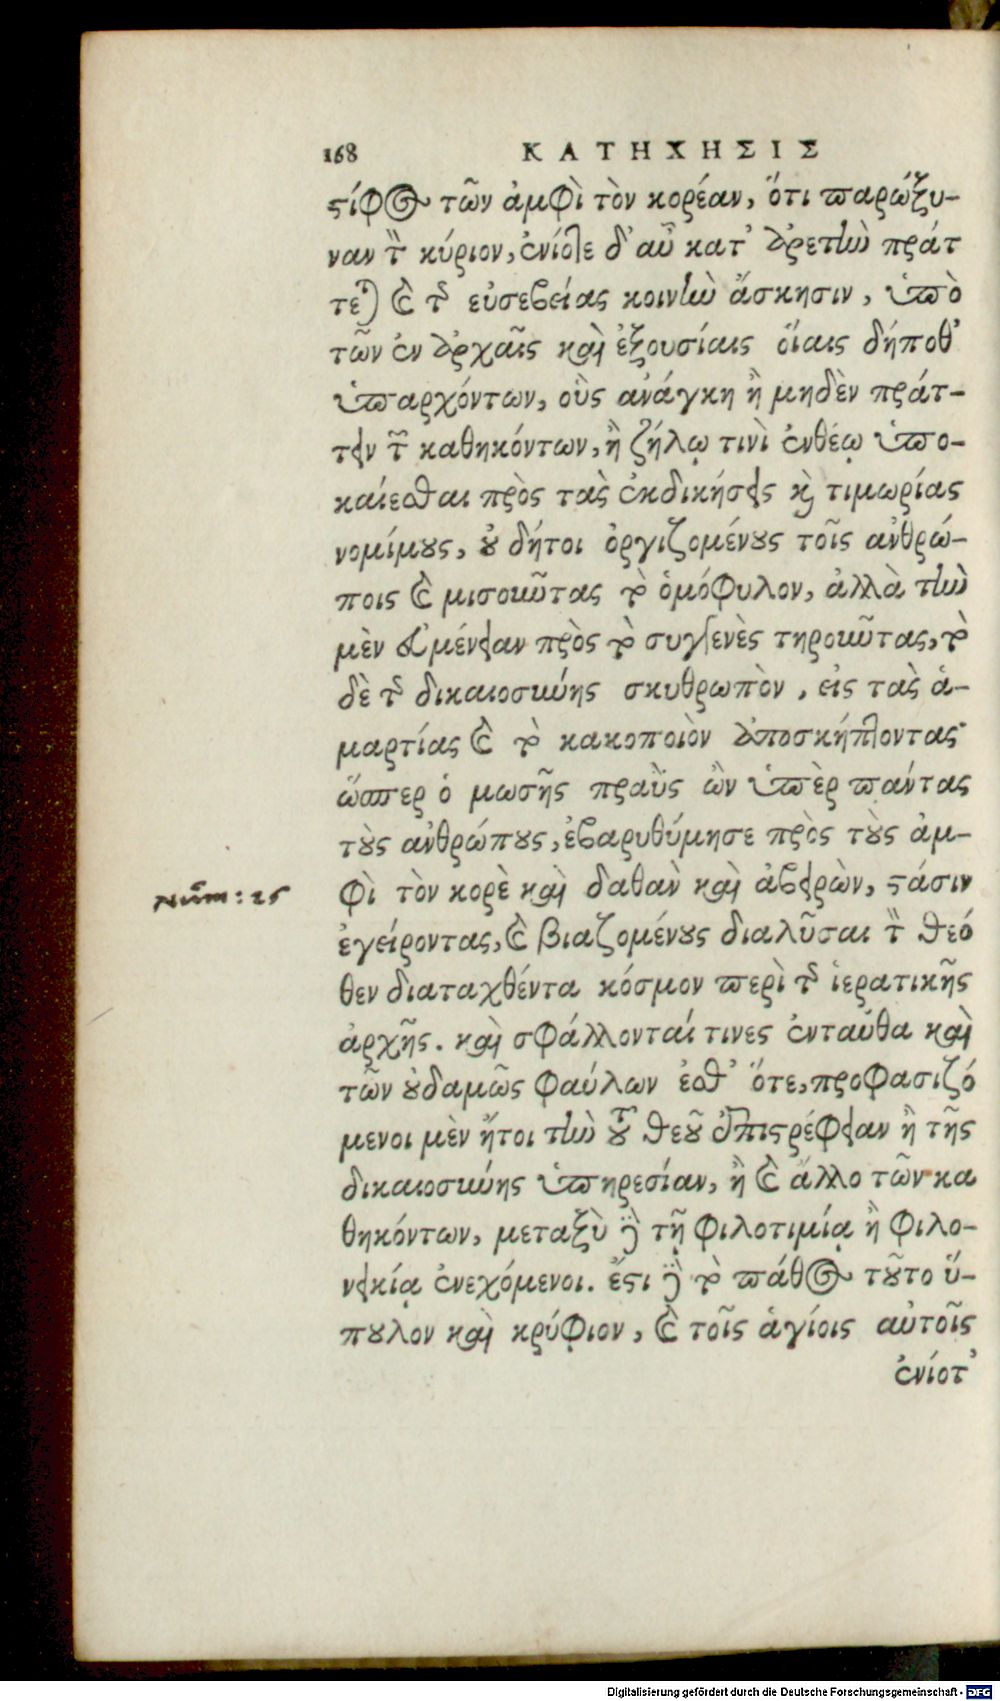 168 ΚΑΤΗΧΗΣΙΣ
στίφος τῶν ἀμφὶ τὸν κορέαν, ὅτι παρώξυ-
ναν τὸν κύριον, ἐνίοτε δ' αὖ κατ' ἀρετὴν πράτ
τεται καὶ τῆς εὐσεβείας κοινὴν ἄσκησιν, ὑπὸ
τῶν ἐν ἀρχαῖς καὶ ἐξουσίαις οἵαις δήποθ'
ὑπαρχόντων, οὓς ἀνάγκη ἢ μηδὲν πράτ-
τειν τῶν καθηκόντων, ἢ ζήλῳ τινὶ ἐνθέῳ ὑπο-
καίεσθαι πρὸς τὰς ἐκδικήσεις καὶ τιμωρίας
νομίμους, οὐ δήτοι ὀργιζομένους τοῖς ἀνθρώ-
ποις καὶ μισοῦντας τὸ ὁμόφυλον, ἀλλὰ τὴν
μὲν εὐμένειαν πρὸς τὸ συγγενὲς τηροῦντας, τὸ
δὲ τῆς δικαιοσύνης σκυθρωπὸν, εἰς τὰς ἁ-
μαρτίας καὶ τὸ κακοποιὸν ἀποσκήπτοντας·
ὥσπερ ὁ μωσῆς πραῢς ὢν ὑπὲρ πάντας
τοὺς ἀνθρώπους, ἐβαρυθύμησε πρὸς τοὺς ἀμ-
φὶ τὸν κορὲ καὶ δαθὰν καὶ ἀβειρὼν, στάσιν
Num: 25
ἐγείροντας, καὶ βιαζομένους διαλῦσαι τὸν θεό
θεν διαταχθέντα κόσμον περὶ τῆς ἱερατικῆς
ἀρχῆς. καὶ σφάλλονταί τινες ἐνταῦθα καὶ
τῶν οὐδαμῶς φαύλων ἐσθ' ὅτε, προφασιζό
μενοι μὲν ἤτοι τὴν τοῦ θεοῦ ἐπιστρέφειαν ἢ τῆς
δικαιοσύνης ὑπηρεσίαν, ἢ καὶ ἄλλο τῶν κα
θηκόντων, μεταξὺ δὲ τῇ φιλοτιμίᾳ ἢ φιλο-
νεικίᾳ ἐνεχόμενοι. ἔστι δὲ τὸ πάθος τοῦτο ὕ-
πουλον καὶ κρύφιον, καὶ τοῖς ἁγίοις αὐτοῖς
ἐνίοτ'
Digitalisierung gefördert durch die Deutsche Forschungsgemeinschaft - DFG